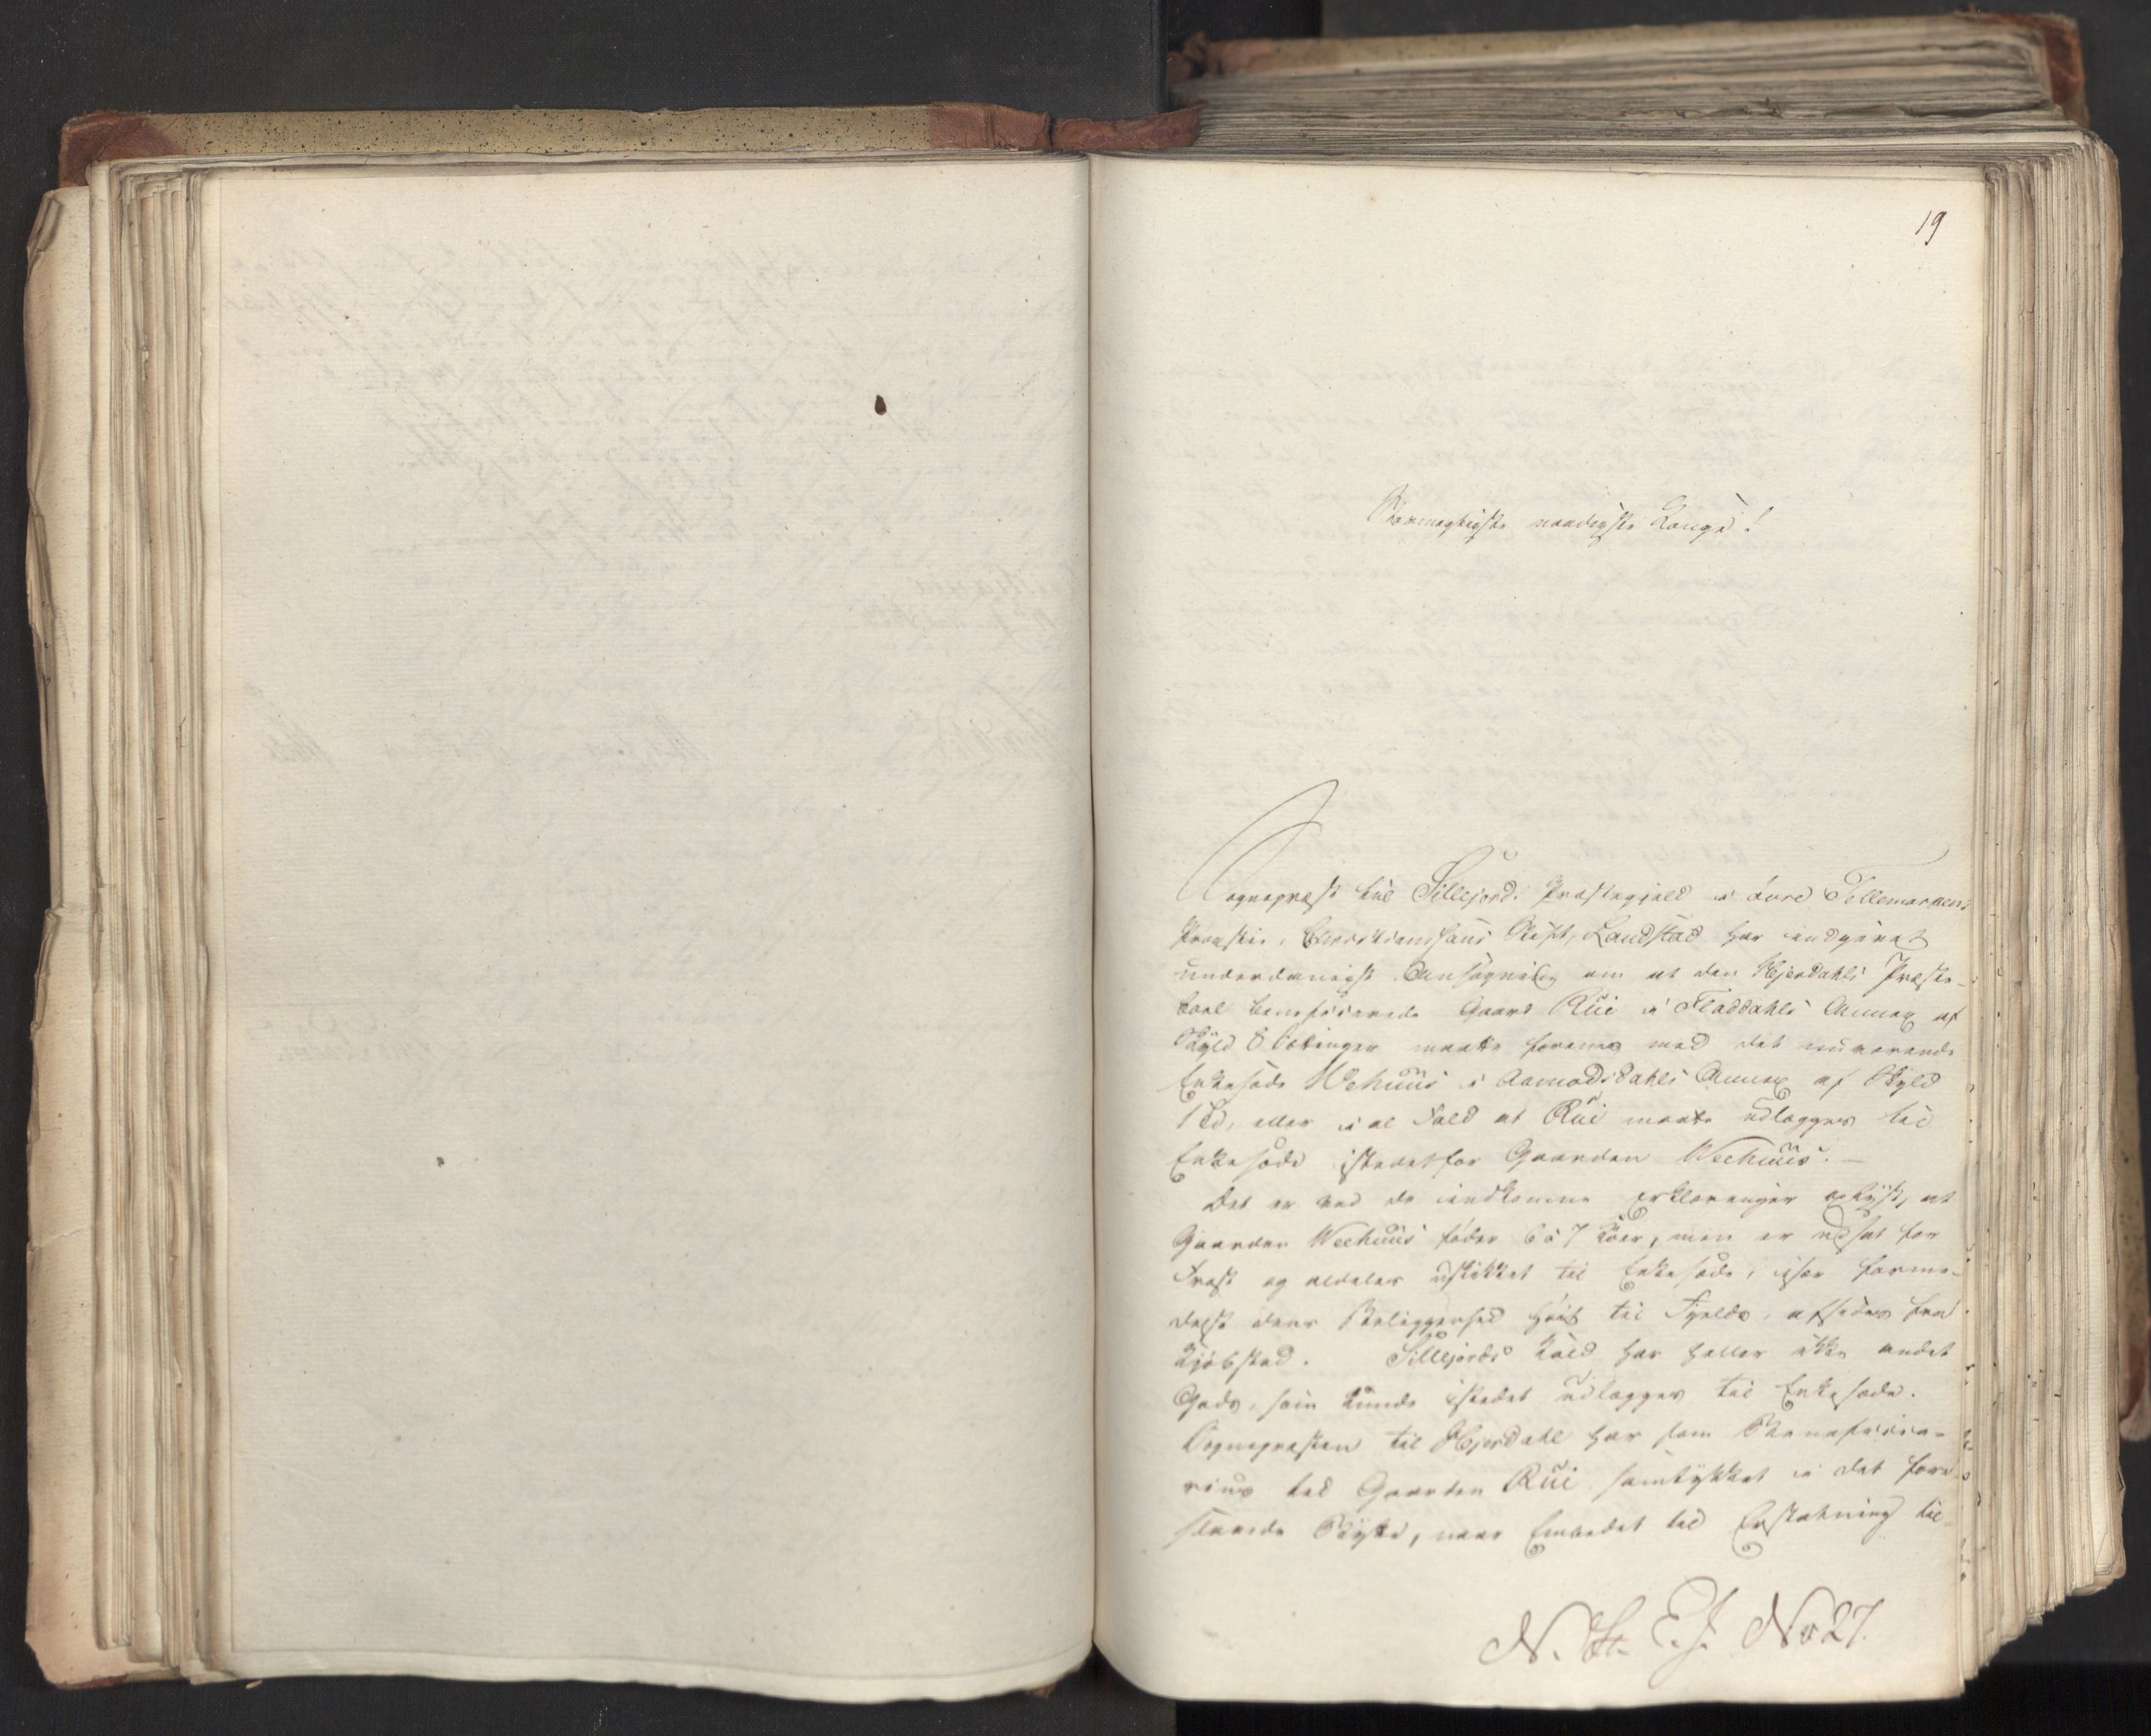 19
Stormægtigste naadigste Konge!
Sognepræst til Sillejords Præstegjeld i Øvre Tellemarkens
Provstie, Christianssands Stift, Landstad har indgivet
underdanigst Ansøgning om at den Hjerdahls Præste-
boel beneficerede Gaard Rui i Fladdahls Annex af
Skyld 8 Sættinger maatte forenes med det nuværende
Enkesæde Wehuus i Aamodsdahls Annex af Skyld
1 Td, eller i al Fald at Rui maatte udlægges til
Enkesæde istedetfor Gaarden Weehuus. —
Det er ved de indkomne Erklæringer oplyst, at
Gaarden Weehuus føder 6 à 7 Køer, men er udsat for
Frost og aldeles uskikket til Enkesæde, især forme-
delst dens Beliggenhed høit til Fjelds, afsides fra
Kjøbstad. Sillejords Kald har heller ikke andet
Gods, som kunde istedet udlægges til Enkesæde.
Sognepræsten til Hjerdahl har som Beneficia-
rius til Gaarden Rui samtykket i det fore-
slaaede Bytte, naar Embedet til Erstatning til-
N. St. E. J. No 27.